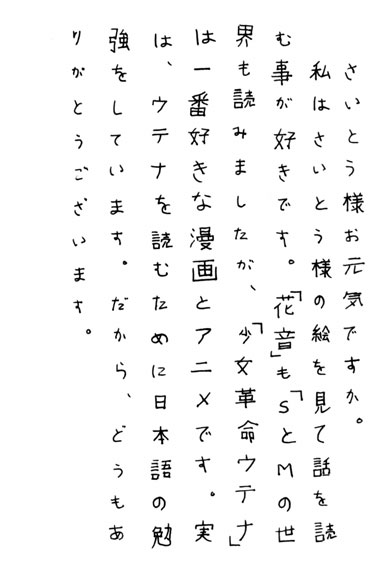 さいとう様お元気ですか。
私はさいとう様の絵を見て話を読
む事が好きです。「花音」も「SとMの世
界も読みましたが、「少女革命ウテナ」
は一番好きな漫画とアニメです。実
は、ウテナを読むために日本語の勉
強をしています。だから、どうもあ
りがとうございます。